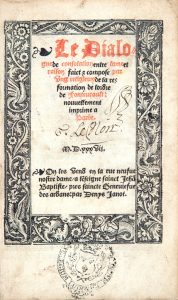 Le Dialo
gue de consolation entre lame et
raison, faict & compose par
Vng religieux de la re-
formation de lordre
de Fontevrault:
nouvellement
imprime a
Paris.
M.D.xxxvii.
On les vend en la rue neufue
nostre dame, a lenseigne sainct Jehã
Baptiste, pres saincte Geneuiefue
des ardans: par Denys Janot.